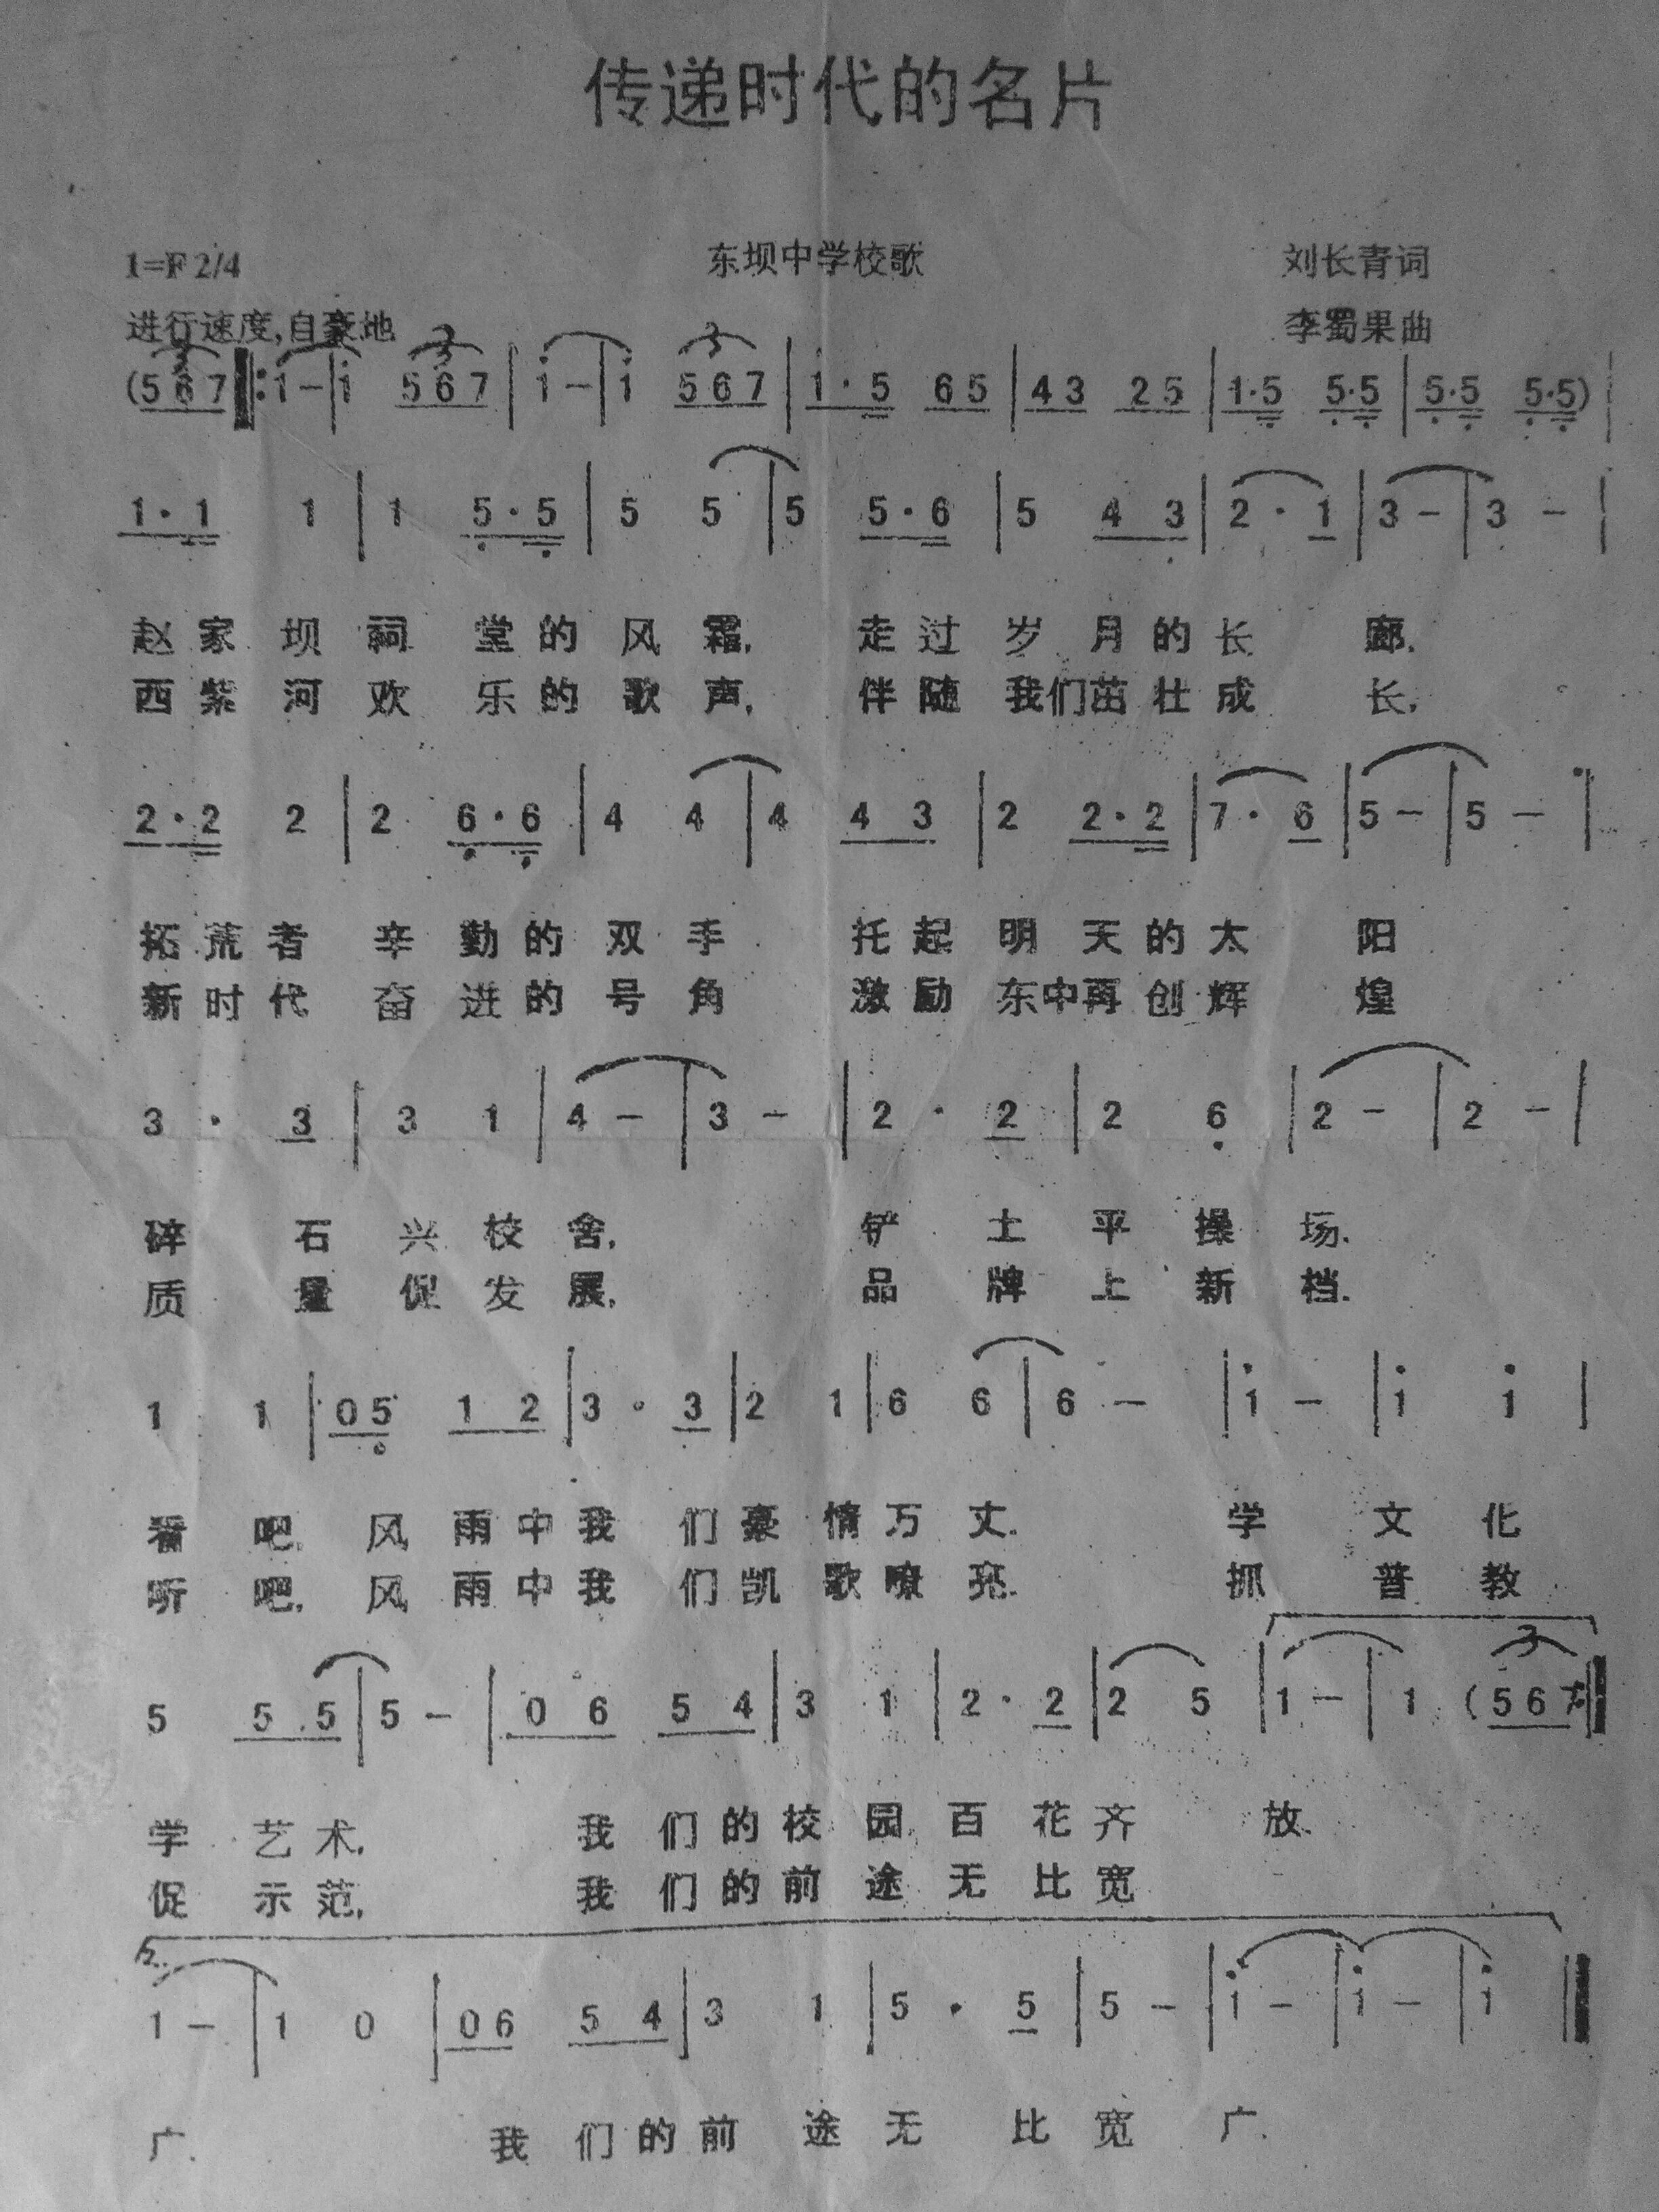 传递时代的名片
1=F 2/4 东坝中学校歌 刘长青词
进行速度,自豪地 李蜀果曲
(5 6 7 ‖: 1 - | 1 5 6 7 | 1 - | 1 5 6 7 | 1 · 5 6 5 | 4 3 2 5 | 1·5 5·5 | 5·5 5·5) |
1 · 1 1 | 1 5 · 5 | 5 5 | 5 5 · 6 | 5 4 3 | 2 · 1 | 3 - | 3 - |
赵家坝祠堂的风霜, 走过岁月的长廊.
西紫河欢乐的歌声, 伴随我们茁壮成长,
2 · 2 2 | 2 6 · 6 | 4 4 | 4 4 3 | 2 2 · 2 | 7 · 6 | 5 - | 5 - |
拓荒者辛勤的双手 托起明天的太阳
新时代奋进的号角 激励东中再创辉煌
3 · 3 | 3 1 | 4 - | 3 - | 2 · 2 | 2 6 | 2 - | 2 - |
碎石兴校舍, 铲土平操场.
质量促发展, 品牌上新档.
1 1 | 0 5 1 2 | 3 · 3 | 2 1 | 6 6 | 6 - | 1 - | 1 1 |
看吧, 风雨中我们豪情万丈. 学文化
听吧, 风雨中我们凯歌嘹亮. 抓普教
5 5 5 | 5 - | 0 6 5 4 | 3 1 | 2 · 2 | 2 5 | 1 - | 1 (5 6 7 :‖
学艺术, 我们的校园百花齐放.
促示范, 我们的前途无比宽
2.
1 - | 1 0 | 0 6 5 4 | 3 1 | 5 · 5 | 5 - | 1 - | 1 - | 1 ‖
广. 我们的前途无比宽广.